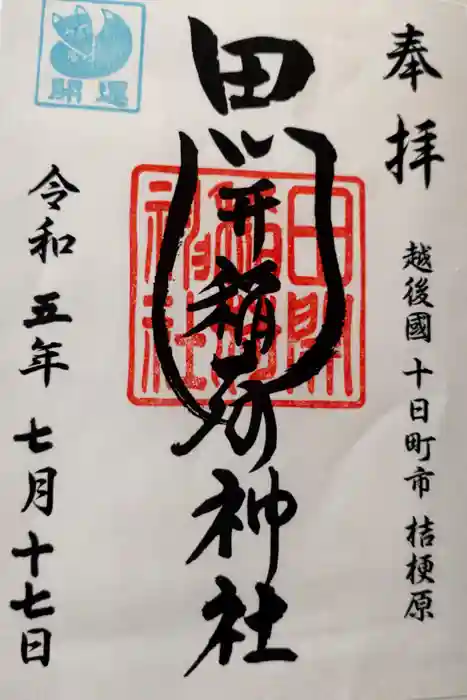 奉拝
越後國 十日町市 桔梗原
田開稲荷神社
令和五年七月十七日
開運